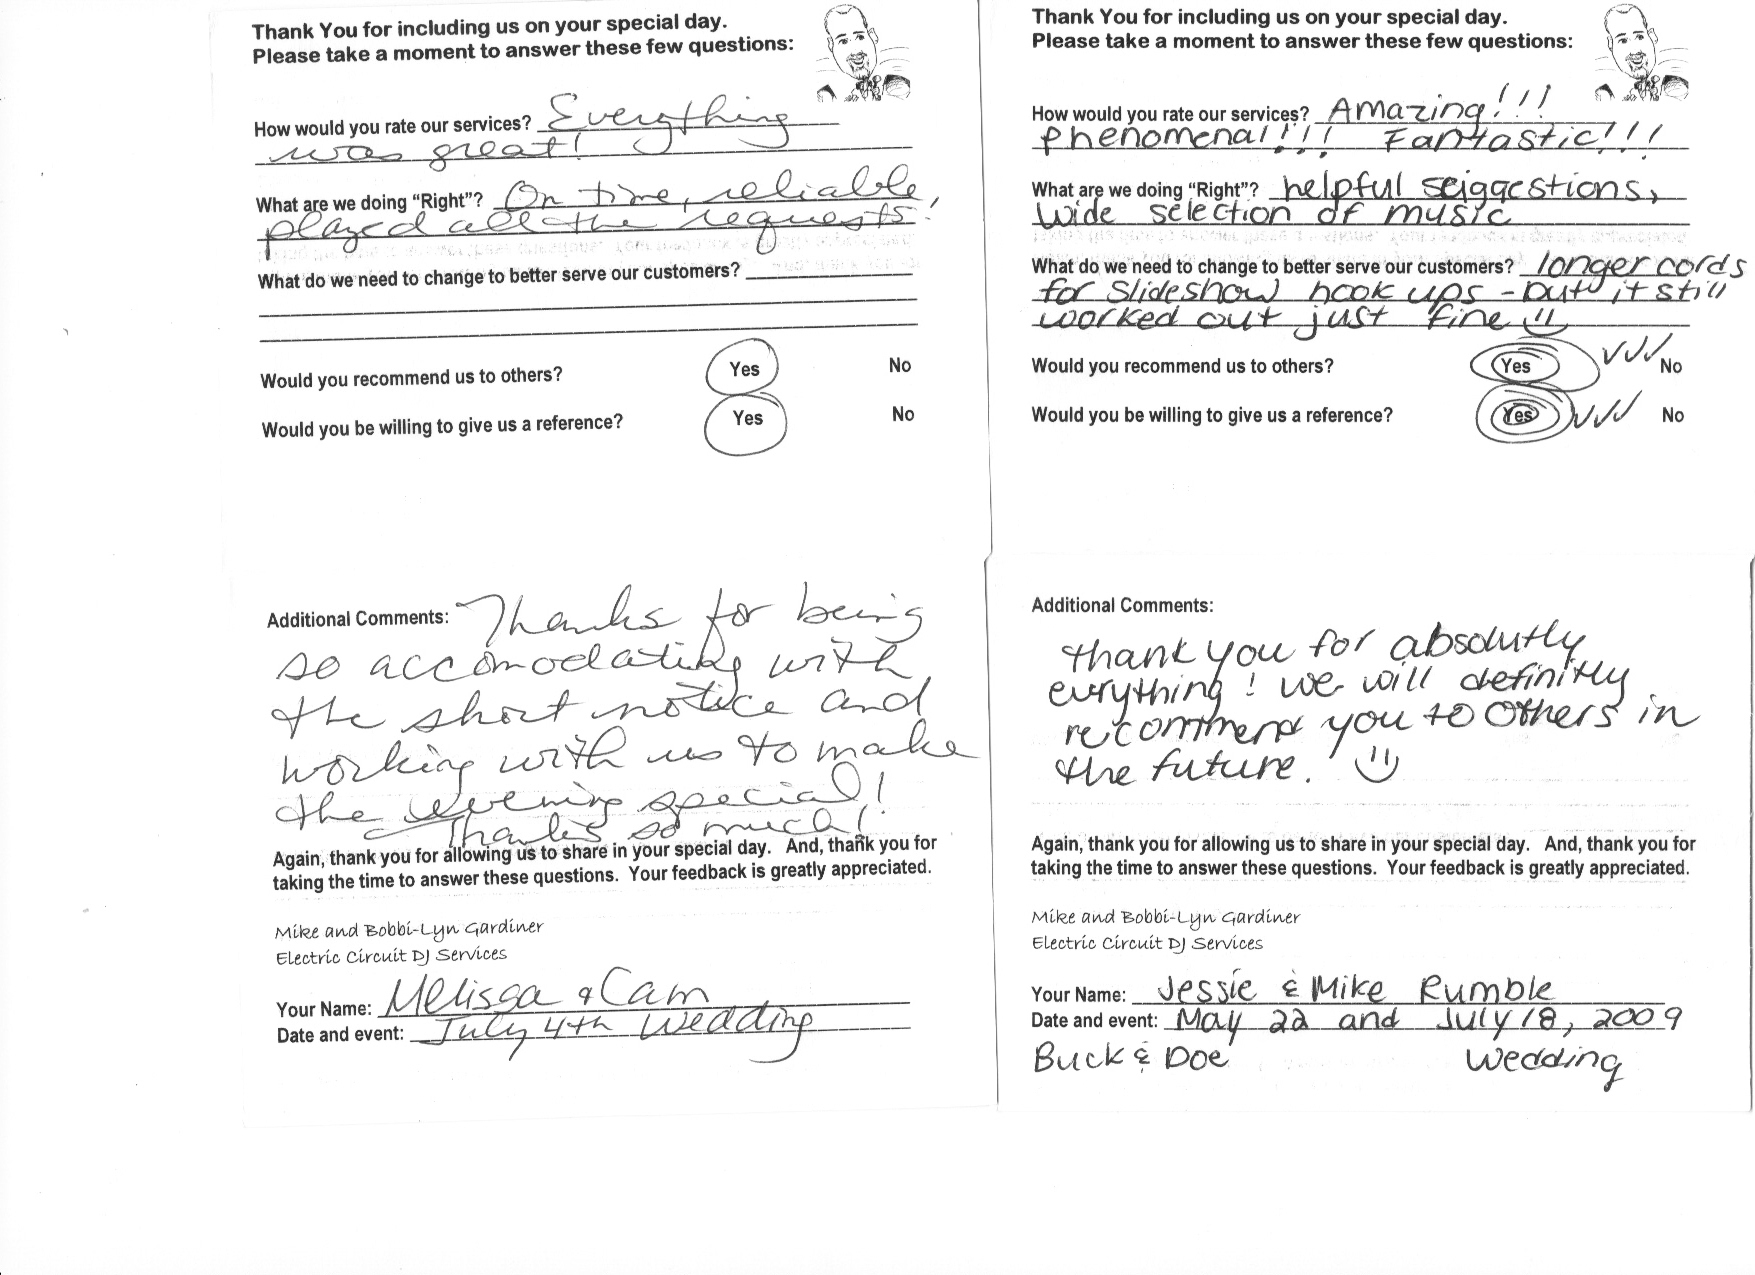 Thank You for including us on your special day.
Please take a moment to answer these few questions:
How would you rate our services? Everything
was great!
What are we doing “Right”? On time, reliable,
played all the requests.
What do we need to change to better serve our customers?
Would you recommend us to others? Yes No
Would you be willing to give us a reference? Yes No
Additional Comments: Thanks for being
so accomodating with
the short notice and
working with us to make
the evening special!
Thanks so much!
Again, thank you for allowing us to share in your special day. And, thank you for
taking the time to answer these questions. Your feedback is greatly appreciated.
Mike and Bobbi-Lyn Gardiner
Electric Circuit DJ Services
Your Name: Melissa & Cam
Date and event: July 4th Wedding
Thank You for including us on your special day.
Please take a moment to answer these few questions:
How would you rate our services? Amazing!!!
phenomenal!!! Fantastic!!!
What are we doing “Right”? helpful seiggestions,
wide selection of music
What do we need to change to better serve our customers? longer cords
for slideshow hook ups - but it still
worked out just fine
Would you recommend us to others? Yes No
Would you be willing to give us a reference? Yes No
Additional Comments:
thank you for absolutly
everything! we will definitly
recommend you to others in
the future.
Again, thank you for allowing us to share in your special day. And, thank you for
taking the time to answer these questions. Your feedback is greatly appreciated.
Mike and Bobbi-Lyn Gardiner
Electric Circuit DJ Services
Your Name: Jessie & Mike Rumble
Date and event: May 22 and July 18, 2009
Buck & Doe Wedding